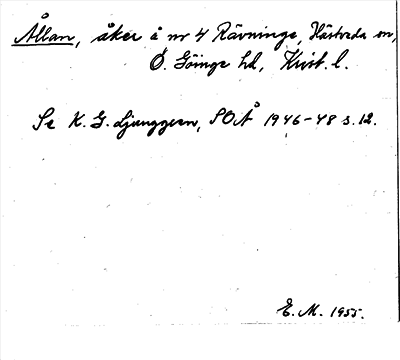 Ållan, åker å nr 4 Rävninge, Hästveda sn,
Ö. Göinge hd, Krist. l.
Se K. G. Ljunggren, SOÅ 1946-48 s. 12.
E. M. 1955.